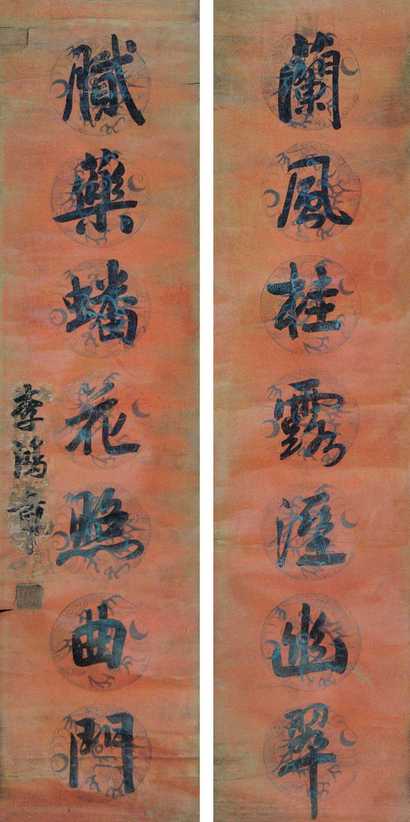 蘭風桂露溼幽翠
膩藥蟠花照曲門
李鴻章